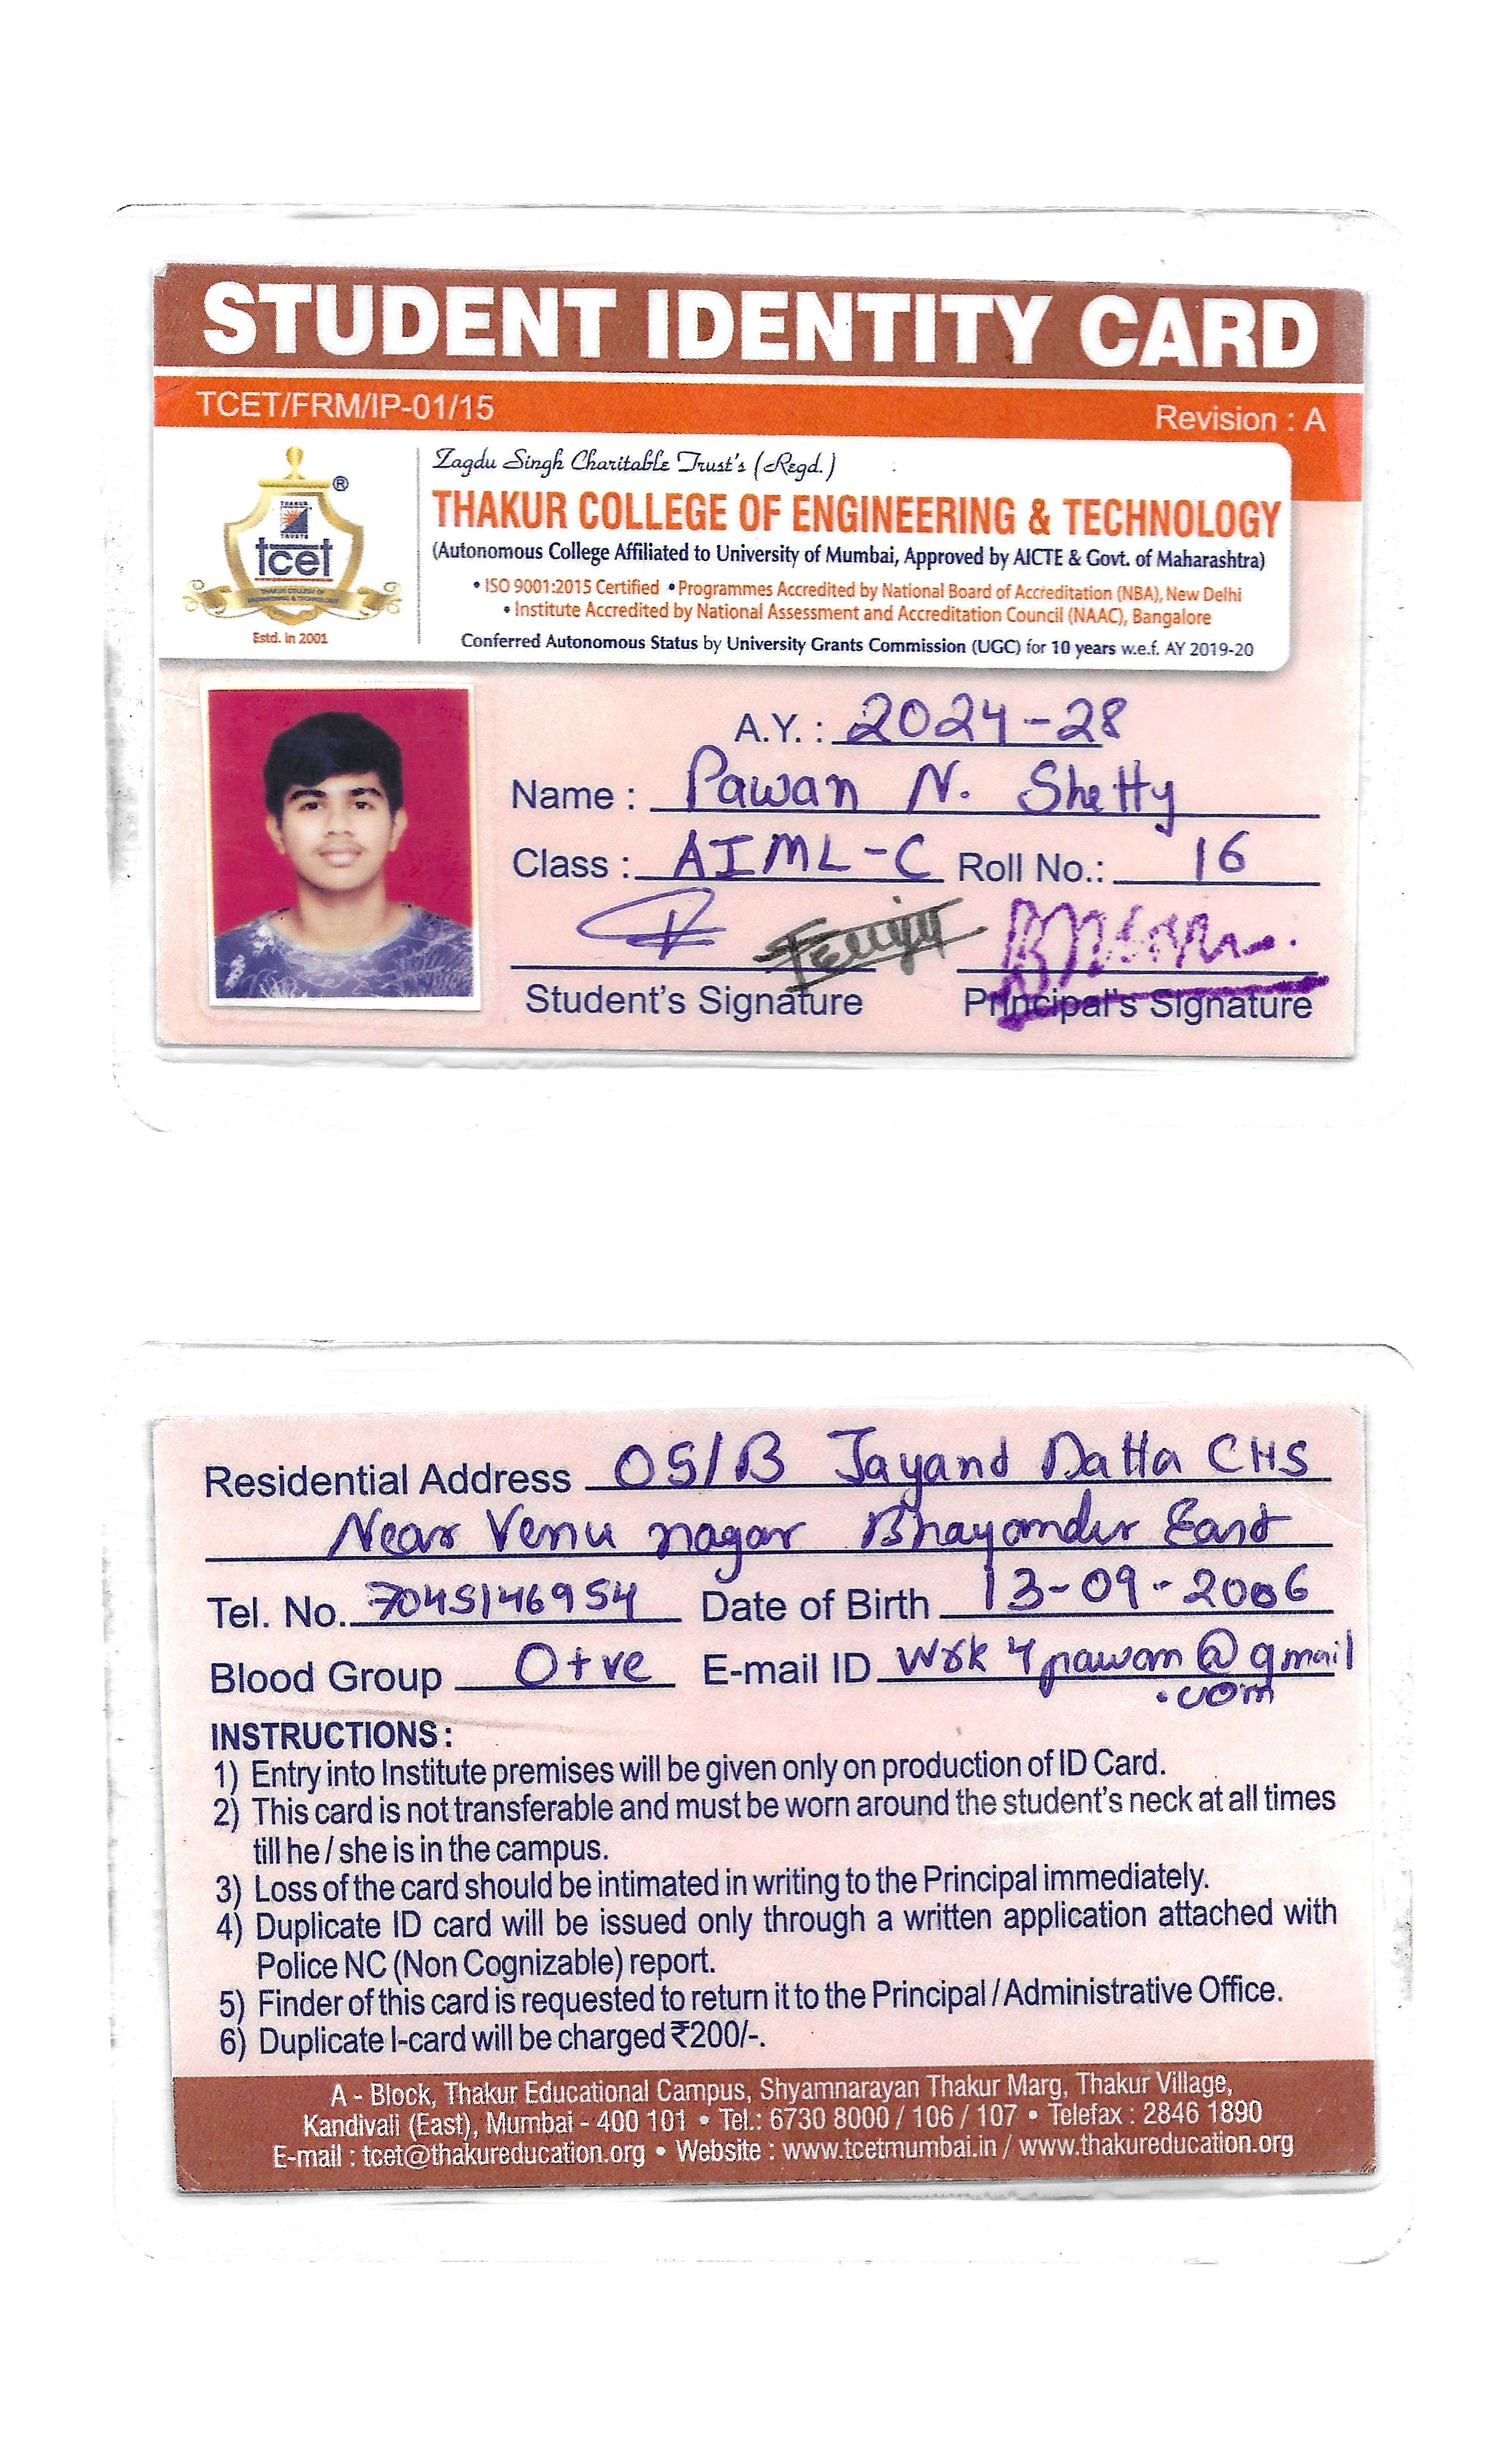 STUDENT IDENTITY CARD
TCET/FRM/IP-01/15 Revision : A
Zagdu Singh Charitable Trust's (Regd.)
THAKUR COLLEGE OF ENGINEERING & TECHNOLOGY
(Autonomous College Affiliated to University of Mumbai, Approved by AICTE & Govt. of Maharashtra)
• ISO 9001:2015 Certified • Programmes Accredited by National Board of Accreditation (NBA), New Delhi
• Institute Accredited by National Assessment and Accreditation Council (NAAC), Bangalore
Conferred Autonomous Status by University Grants Commission (UGC) for 10 years w.e.f. AY 2019-20
®
THAKUR
TRUSTS
tcet
THAKUR COLLEGE OF
ENGINEERING & TECHNOLOGY
Estd. in 2001
A.Y. : 2024-28
Name : Pawan N. Shetty
Class : AIML-C Roll No.: 16
Student's Signature Principal's Signature
Residential Address 05/B Jayand Datta CHS
Near Venu nagar Bhayander East
Tel. No. 7045146954 Date of Birth 13-09-2006
Blood Group O+ve E-mail ID wrk4pawan@gmail
.com
INSTRUCTIONS :
1) Entry into Institute premises will be given only on production of ID Card.
2) This card is not transferable and must be worn around the student's neck at all times
till he / she is in the campus.
3) Loss of the card should be intimated in writing to the Principal immediately.
4) Duplicate ID card will be issued only through a written application attached with
Police NC (Non Cognizable) report.
5) Finder of this card is requested to return it to the Principal / Administrative Office.
6) Duplicate I-card will be charged ₹200/-.
A - Block, Thakur Educational Campus, Shyamnarayan Thakur Marg, Thakur Village,
Kandivali (East), Mumbai - 400 101 • Tel.: 6730 8000 / 106 / 107 • Telefax : 2846 1890
E-mail : tcet@thakureducation.org • Website : www.tcetmumbai.in / www.thakureducation.org